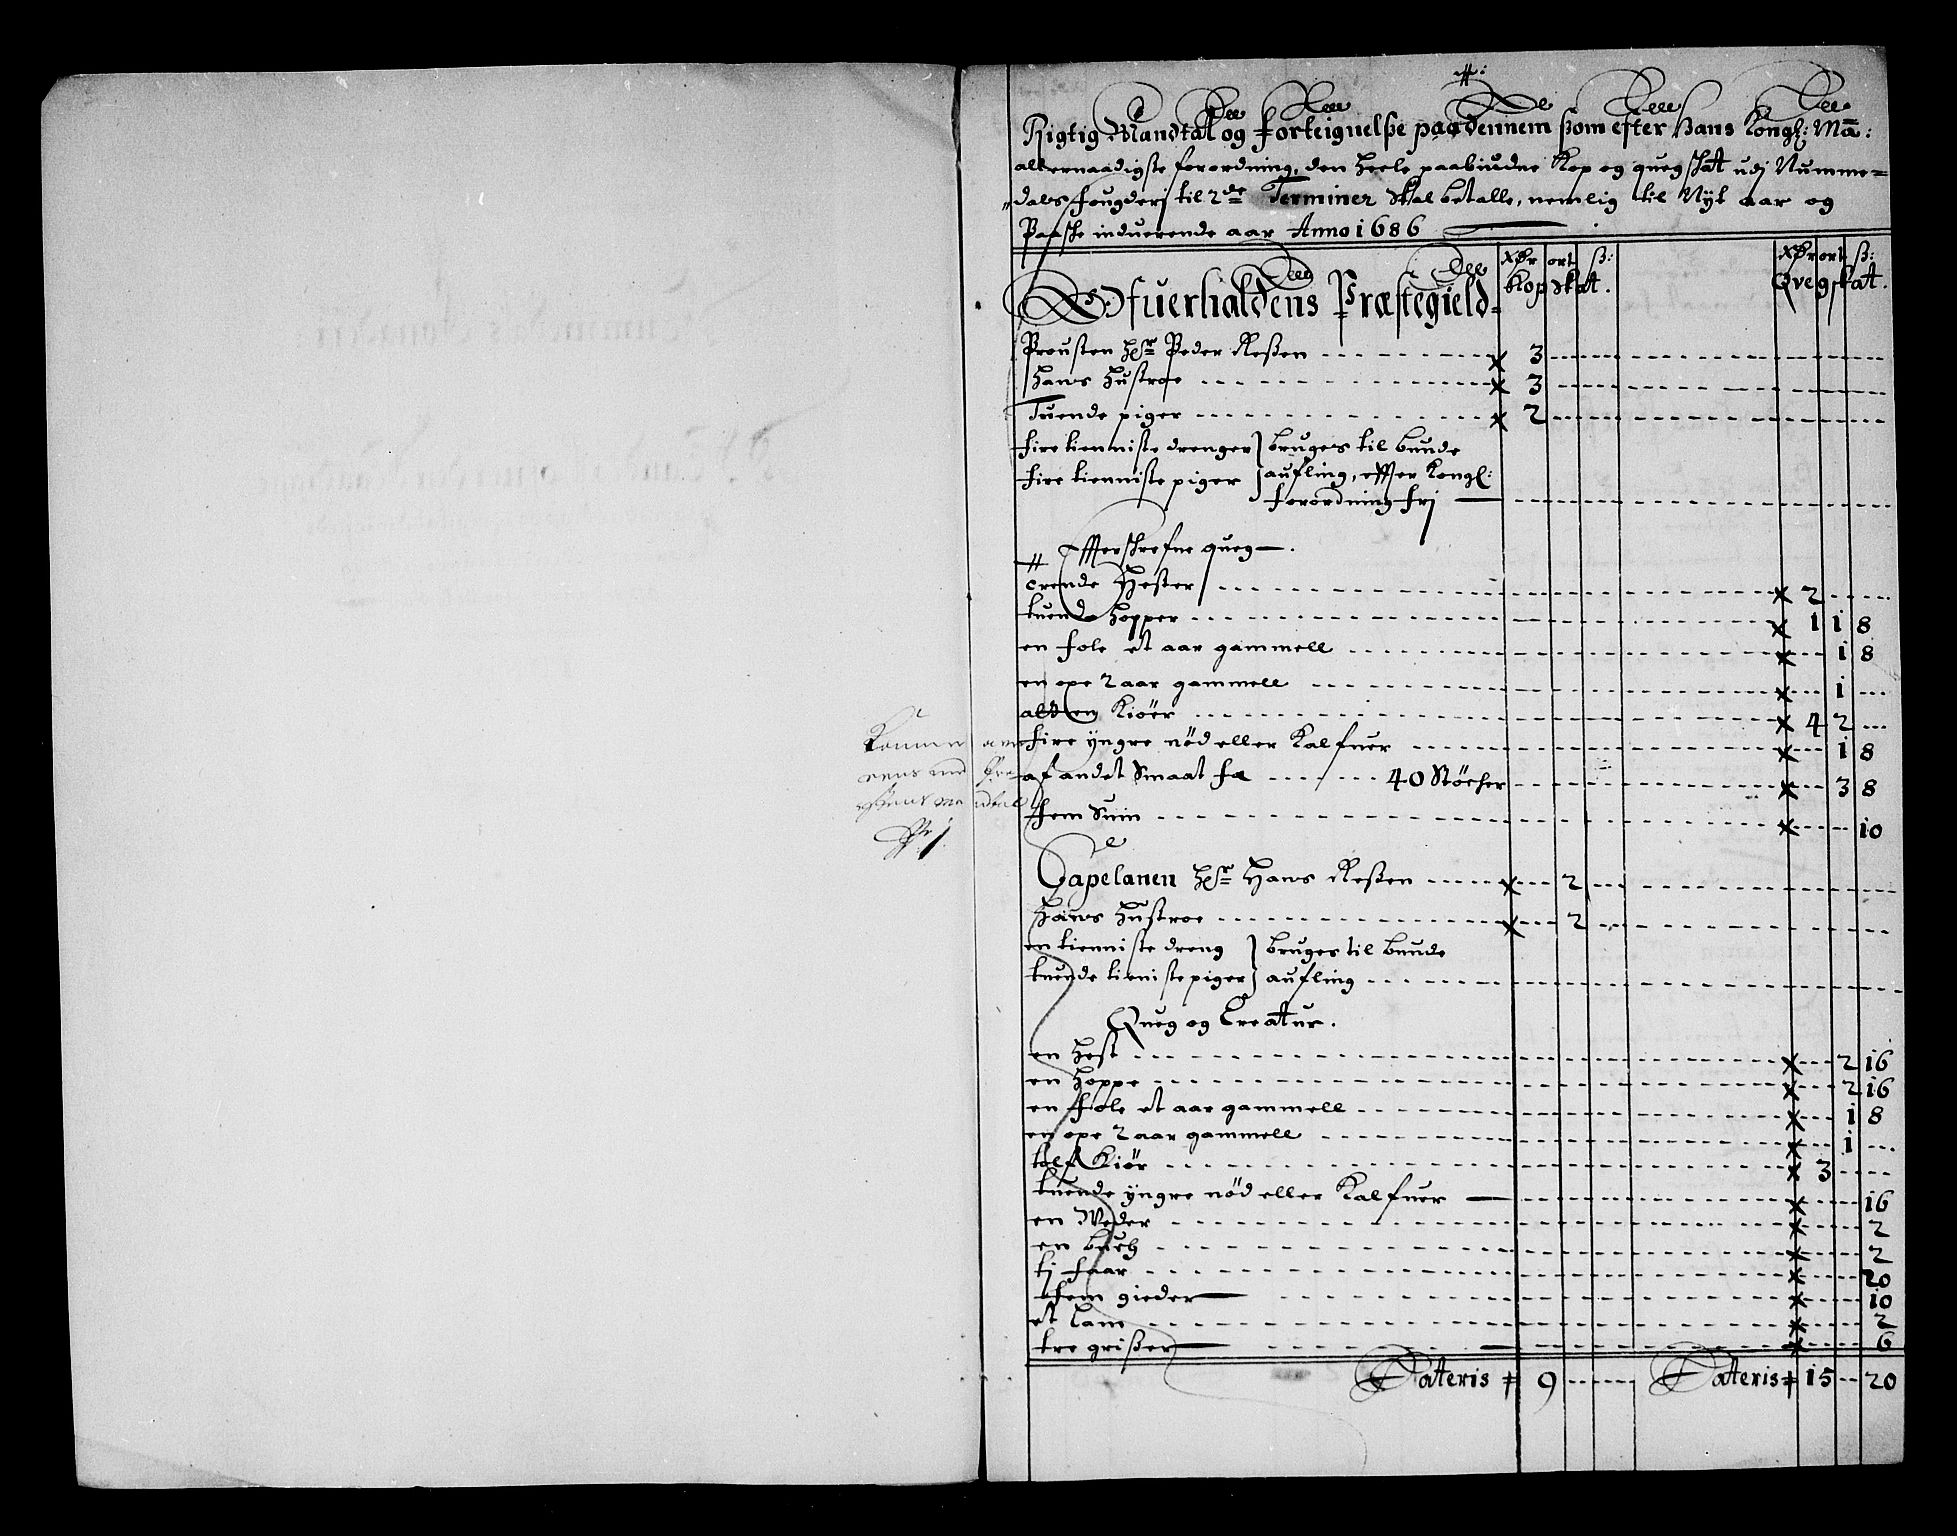 #:
Rigtig Mandtal og forteignelße paa dennem ßom efter Hans Kongl: Ma:
allernaadigste forordning, den heele paabiudne Kop og queg skat udj Numme=
dals fougderj til 2de Terminer Skal betalle, nemlig til Nyt aar og
Paaske indverende aar Anno 1686
Ofuerhaldens Præstegield= Kop Skat. Qvegskat.
ort ß: ort ß:
Prousten hr Peder Reßen x 3
Hans Hustroe x 3
Tuende piger x 2
fire tienniste drenger bruges til bunde
fire tienniste piger aufling, effter Kongl:
forordning frj
Effterskrefne queg.
trende Hester x 2
tuende hopper x 1 1 8
en fole et aar gammell x 1 8
en ope 2 aar gammell x 1
atten Kiöer x 4 2
fire yngre nöd eller Kalfuer x 1 8
af andet Smaat fæ 40 Stöcher x 3 8
fem Suin x 10
Capelanen hr Hans Reßen x 2
Hans Hustroe x 2
en tienniste dreng bruges til bunde
tuende tieniste piger aufling
Queg og Creatur.
en Hest x 2 16
en hoppe x 2 16
en fole et aar gammell x 1 8
en ope 2 aar gammell x 1
tolf Kiör x 3
tuende yngre nöd eller Kalfuer x 16
en Weder x 2
en buch x 2
tj faar x 20
fem gieder x 10
et Lam x 2
tre grißer x 6
Lateris 9 Lateris 15 20